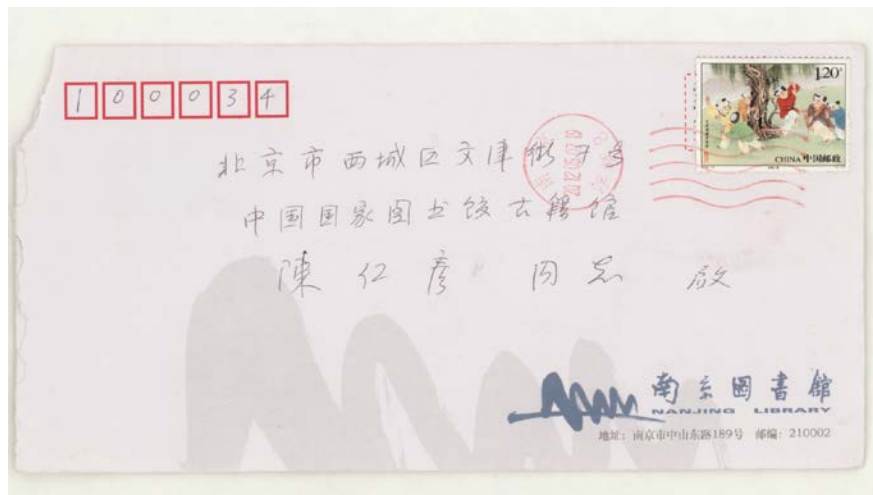 100034
1.20元
CHINA 中国邮政
北京市西城区文津街7号
中国国家图书馆古籍馆
陳仁彦 同志 啟
南京圖書館
NANJING LIBRARY
地址：南京市中山东路189号 邮编：210002